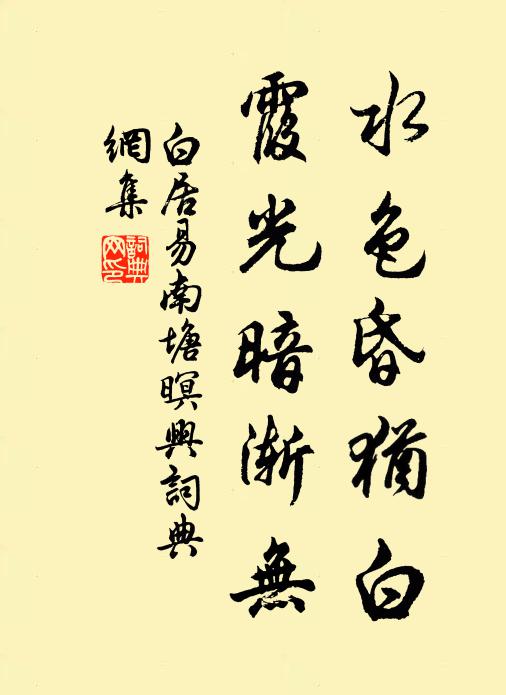 水色昏猶白
霞光暗漸無
白居易南塘暝興詞典
網集
詞典
网印